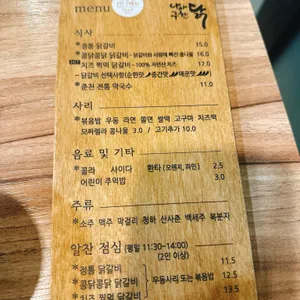 menu
나와 구천 닭
식사
*정통 닭갈비 15.0
*콩닭콩닭 닭갈비 - 닭갈비와 사랑에 빠진 콩나물 16.0
HIT *치즈 퐉퐉 닭갈비 ~100% 자연산 치즈 17.0
- 닭갈비 선택사항(순한맛 / 중간맛 / 매운맛)
*춘천 전통 막국수 11.0
사리
*볶음밥 우동 라면 쫄면 쌀떡 고구마 치즈떡
모짜렐라 콩나물 3.0 / 고기추가 10.0
음료 및 기타
*콜라 사이다 환타 (오렌지, 파인) 2.5
어린이 주먹밥 3.0
주류
*소주 맥주 막걸리 청하 산사춘 백세주 복분자
알찬 점심 (평일 11:30~14:00)
(2인 이상)
*정통 닭갈비 11.5
*콩닭콩닭 닭갈비 우동사리 또는 볶음밥 12.5
*치즈 퐉퐉 닭갈비 13.5